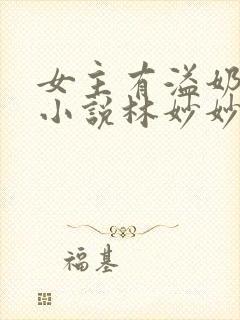 女主有溢奶
小说林妙妙
福基